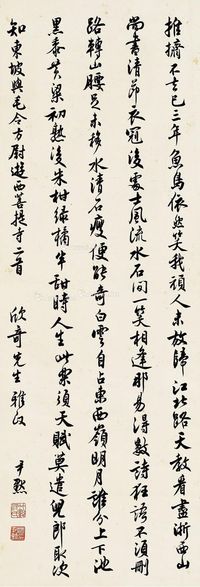 推擠不去已三年魚鳥依然笑我頑人未放歸江北路天教看盡浙西山
尚書清節衣冠後處士風流水石間一笑相逢那易得數詩狂語不須刪
路轉山腰足未移水清石瘦便能奇白雲自占東西嶺明月誰分上下池
黑黍黃粱初熟後朱柑綠橘半甜時人生此樂須天賦莫遣兒郎取次
知東坡與毛令方尉遊西菩提寺二首
欣奇先生雅汉
尹默